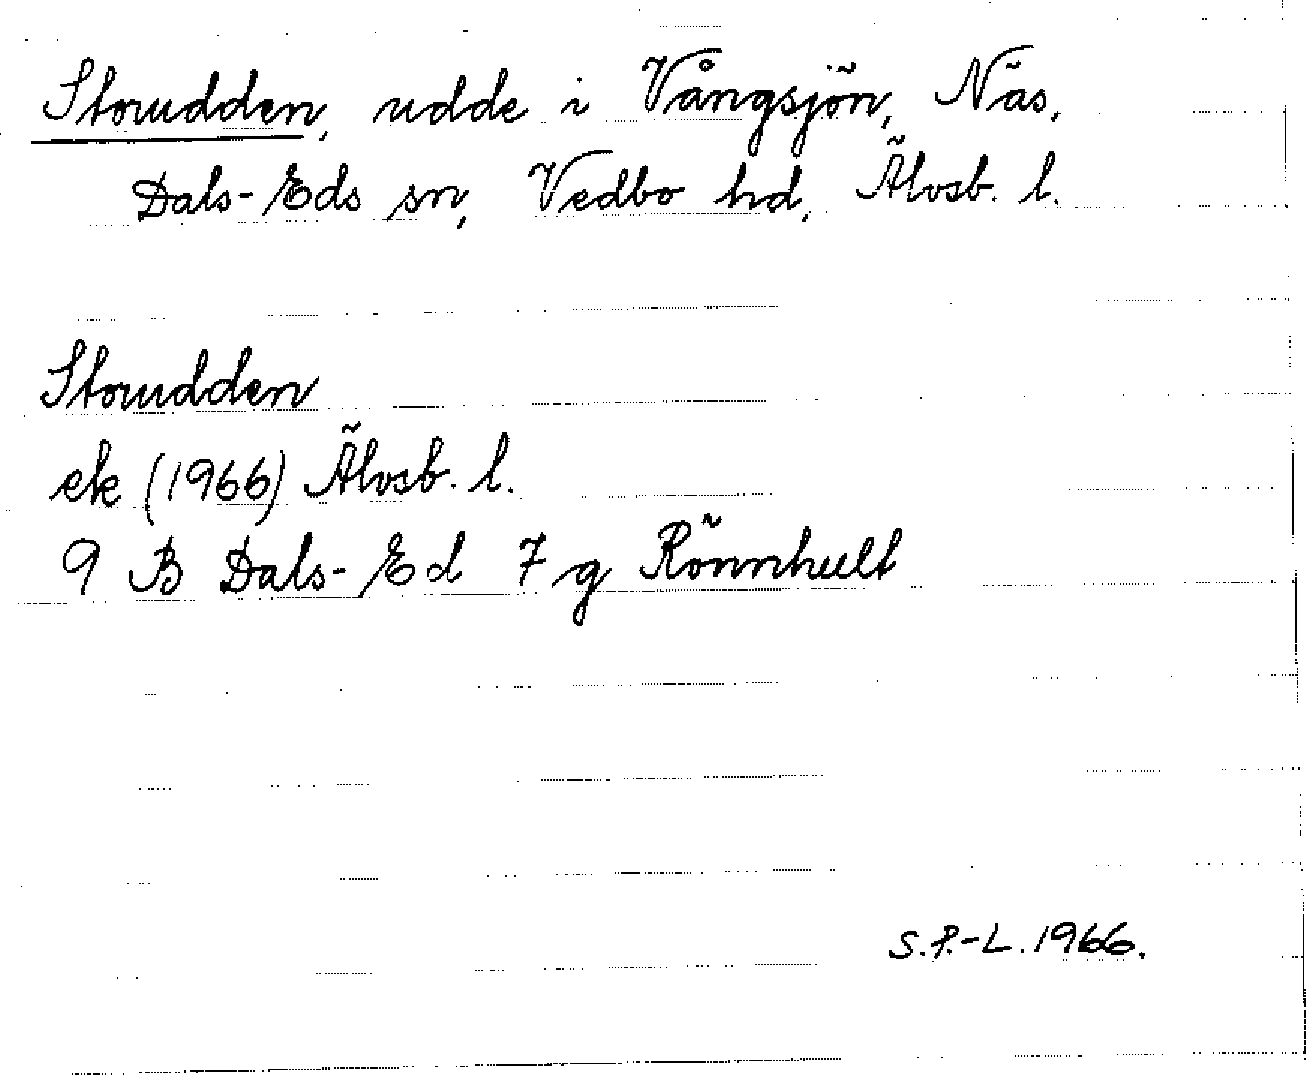 Storudden, udde i Vångsjön, Näs,
Dals-Eds sn, Vedbo hd, Älvsb. l.
Storudden
ek (1966) Älvsb. l.
9 B Dals-Ed 7 g Rönnhult
S.P.-L. 1966.